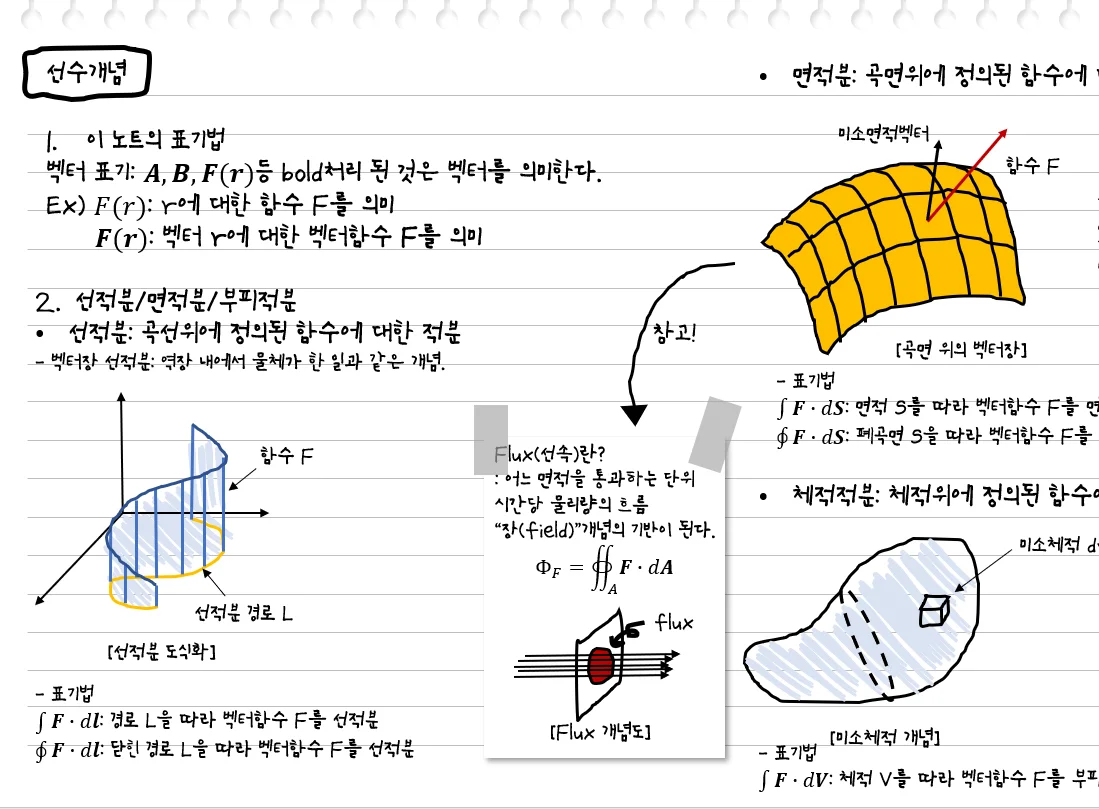 선수개념
1. 이 노트의 표기법
벡터 표기: A, B, F(r)등 bold처리 된 것은 벡터를 의미한다.
Ex) F(r): r에 대한 함수 F를 의미
F(r): 벡터 r에 대한 벡터함수 F를 의미
2. 선적분/면적분/부피적분
• 선적분: 곡선위에 정의된 함수에 대한 적분
- 벡터장 선적분: 역장 내에서 물체가 한 일과 같은 개념.
함수 F
선적분 경로 L
[선적분 도식화]
- 표기법
∫ F · dl: 경로 L을 따라 벡터함수 F를 선적분
∮ F · dl: 닫힌 경로 L을 따라 벡터함수 F를 선적분
참고!
Flux(선속)란?
: 어느 면적을 통과하는 단위
시간당 물리량의 흐름
“장(field)”개념의 기반이 된다.
Φ_F = ∯_A F · dA
flux
[Flux 개념도]
• 면적분: 곡면위에 정의된 함수에
미소면적벡터
함수 F
[곡면 위의 벡터장]
- 표기법
∫ F · dS: 면적 S를 따라 벡터함수 F를 면
∮ F · dS: 폐곡면 S을 따라 벡터함수 F를
• 체적적분: 체적위에 정의된 함수에
미소체적 d
[미소체적 개념]
- 표기법
∫ F · dV: 체적 V를 따라 벡터함수 F를 부피